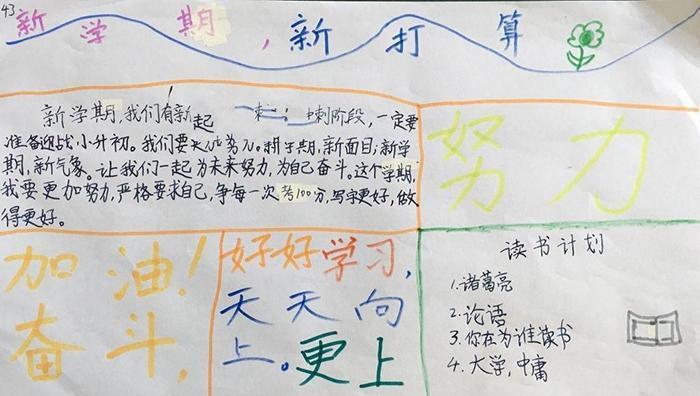 43
新学期，新打算
新学期，我们有新起 刺阶段，一定要
准备迎战小升初。我们要 新面目；新学
期，新气象。让我们一起为未来努力，为自己奋斗。这个学期，
我要更加努力，严格要求自己，争每一次考100分，写字更好，做
得更好。
努力
加油！
奋斗，
好好学习，
天天向
上。更上
读书计划
1.诸葛亮
2.论语
3.你在为谁读书
4.大学，中庸